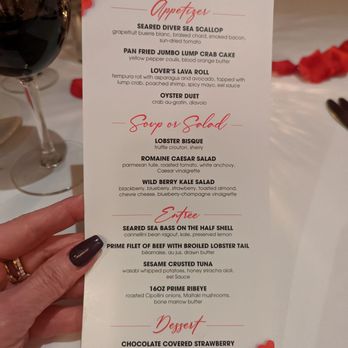 Appetizer
SEARED DIVER SEA SCALLOP
grapefruit buerre blanc, braised chard, smoked bacon,
sun-dried tomato
PAN FRIED JUMBO LUMP CRAB CAKE
yellow pepper coulis, blood orange butter
LOVER'S LAVA ROLL
tempura roll with asparagus and avocado, topped with
lump crab, poached shrimp, spicy mayo, eel sauce
OYSTER DUET
crab au-gratin, diavolo
Soup or Salad
LOBSTER BISQUE
truffle crouton, sherry
ROMAINE CAESAR SALAD
parmesan tuile, roasted tomato, white anchovy,
Caesar vinaigrette
WILD BERRY KALE SALAD
blackberry, blueberry, strawberry, toasted almond,
chevre cheese, blueberry-champagne vinaigrette
Entrée
SEARED SEA BASS ON THE HALF SHELL
cannellini bean ragout, kale, preserved lemon
PRIME FILET OF BEEF WITH BROILED LOBSTER TAIL
béarnaise, au jus, drawn butter
SESAME CRUSTED TUNA
wasabi whipped potatoes, honey sriracha aioli,
eel Sauce
16OZ PRIME RIBEYE
roasted Cipollini onions, Maitake mushrooms,
bone marrow butter
Dessert
CHOCOLATE COVERED STRAWBERRY